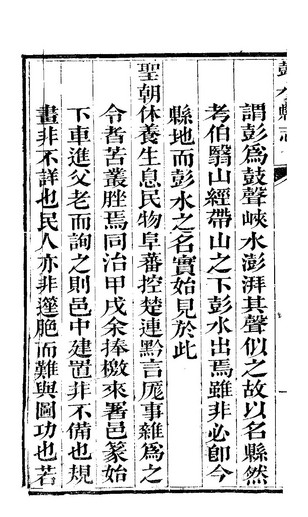 彭水縣志
謂彭爲鼓聲峽水澎湃其聲似之故以名縣然
考伯翳山經帶山之下彭水出焉雖非必卽今
縣地而彭水之名實始見於此
聖朝休養生息民物阜蕃控楚連黔言厖事雜爲之
令者苦叢脞焉同治甲戌余捧檄來署邑篆始
下車進父老而詢之則邑中建置非不備也規
畫非不詳也民人亦非蓬脆而難與圖功也若